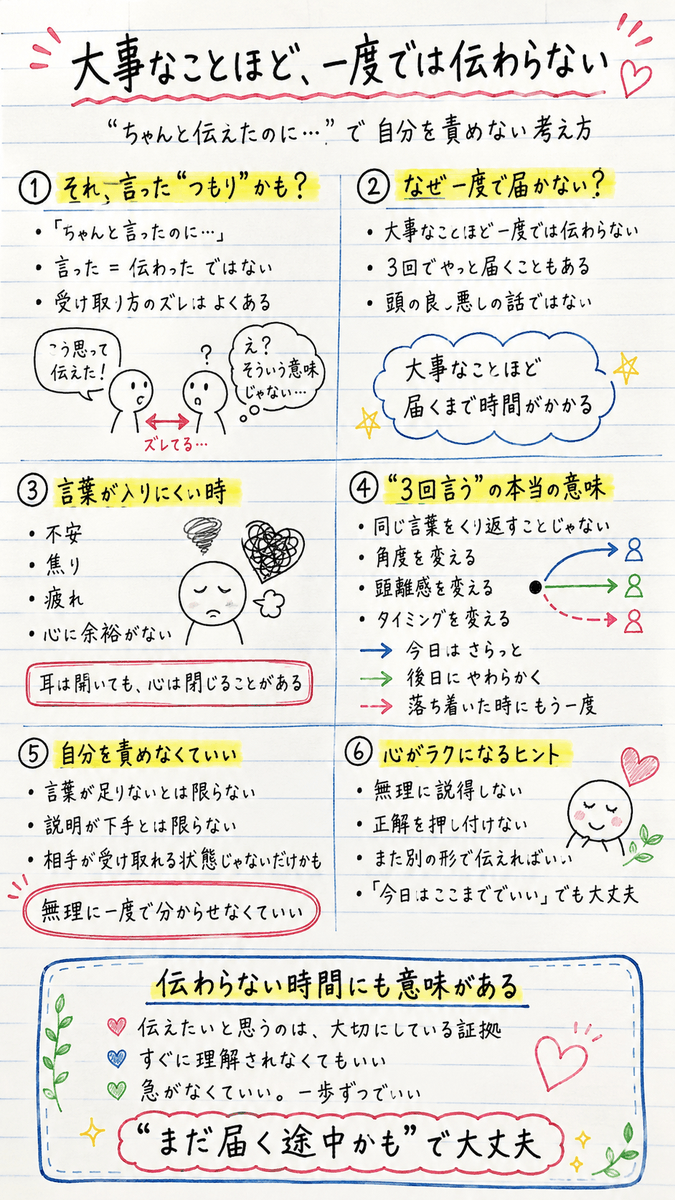 大事なことほど、一度では伝わらない
“ちゃんと伝えたのに…”で 自分を責めない 考え方
① それ、言った“つもり”かも？
・「ちゃんと言ったのに…」
・言った = 伝わった ではない
・受け取り方のズレは よくある
こう思って
伝えた！
?
え？
そういう意味
じゃない…
ズレてる…
② なぜ一度で届かない？
・大事なことほど一度では伝わらない
・3回でやっと届くこともある
・頭の良し悪しの話ではない
大事なことほど
届くまで時間がかかる
③ 言葉が入りにくい時
・不安
・焦り
・疲れ
・心に余裕がない
耳は開いても、心は閉じることがある
④ “3回言う”の本当の意味
・同じ言葉をくり返すことじゃない
・角度を変える
・距離感を変える
・タイミングを変える
→ 今日は さらっと
→ 後日に やわらかく
→ 落ち着いた時にもう一度
⑤ 自分を責めなくていい
・言葉が足りないとは限らない
・説明が下手とは限らない
・相手が受け取れる状態じゃないだけかも
無理に一度で分からせなくていい
⑥ 心がラクになるヒント
・無理に説得しない
・正解を押し付けない
・また別の形で伝えればいい
・「今日はここまででいい」でも大丈夫
伝わらない時間にも意味がある
伝えたいと思うのは、大切にしている証拠
すぐに理解されなくてもいい
急がなくていい。一歩ずつでいい
“まだ届く途中かも”で大丈夫